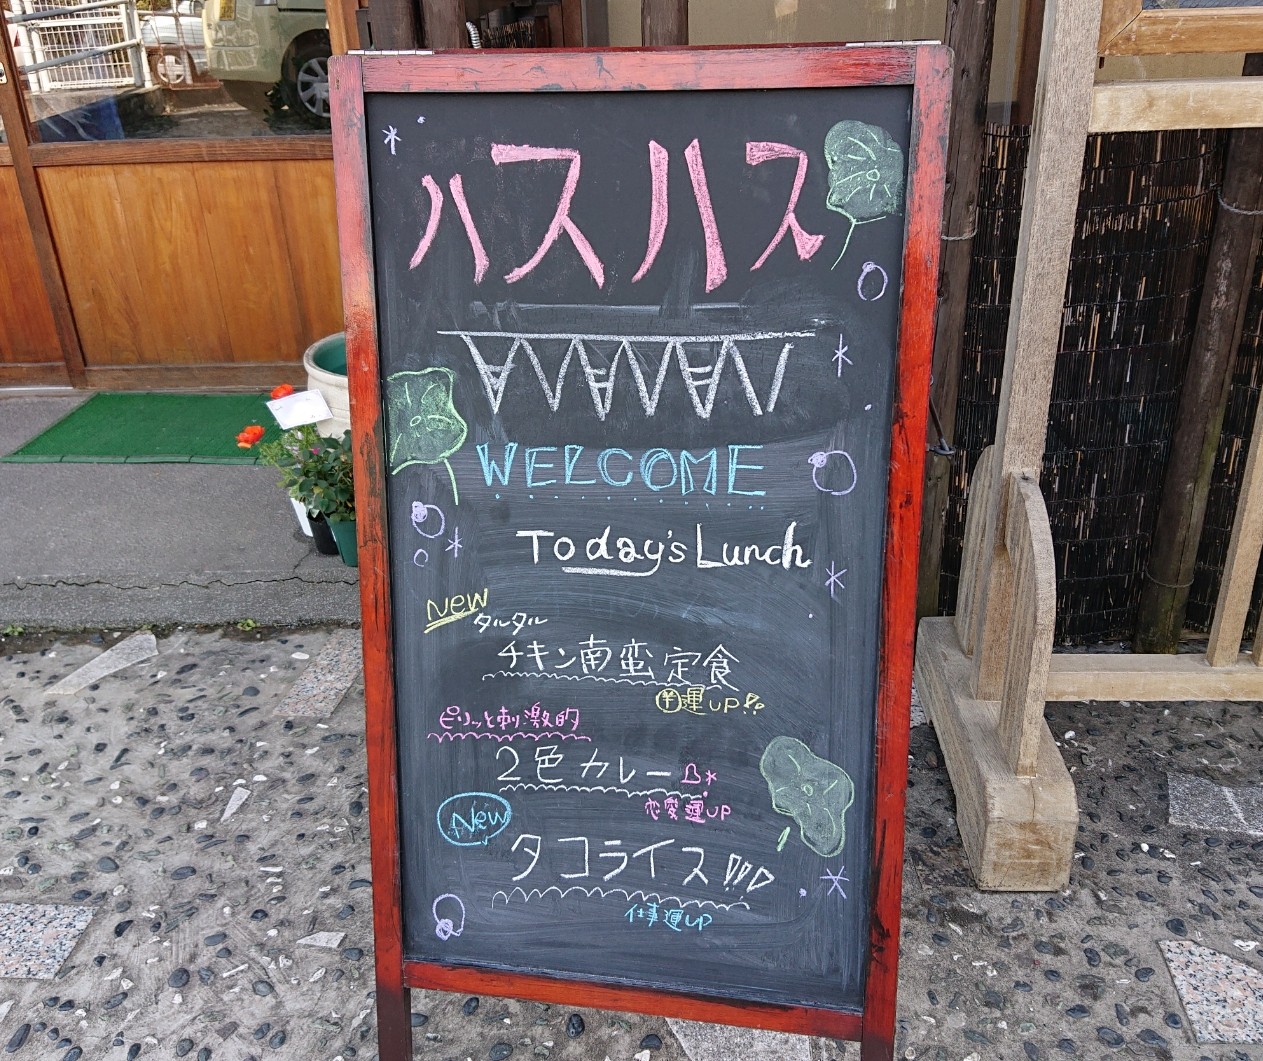 ハスハス
WELCOME
Today's Lunch
New
タルタル
チキン南蛮定食
¥運UP!!
ピリッと刺激的
2色カレー
恋愛運UP
New
タコライス!!!
仕事運UP